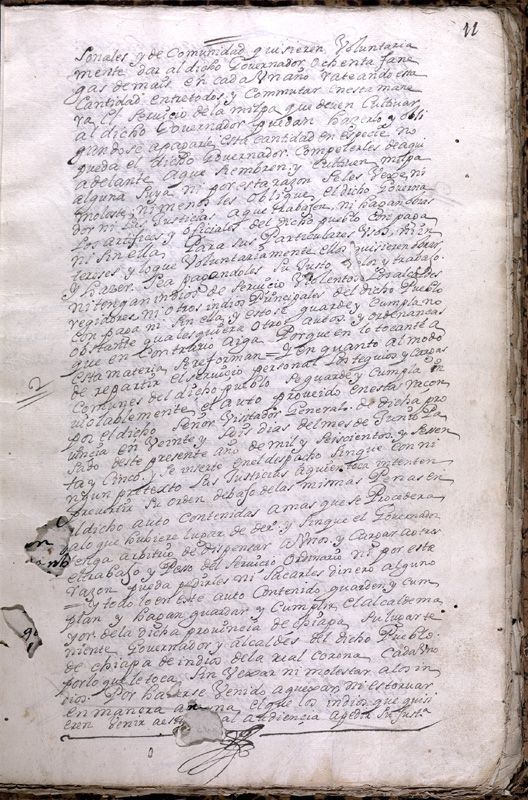 11
sonales y de Comunidad quisieren Voluntaria
mente dar al dicho Governador ochenta fane
gas de mais en cada Un año rateando esta
Cantidad entre todos y Commutar en esta mane
ra el Servicio de la milpa que deven Cultivar
al dicho Governador puedan hazerlo y obli
gandose a pagarle esta cantidad en especie no
pueda el dicho Governador Competerles de aqui
adelante a que siembren y Cultiven milpa
alguna suya ni por esta razon se les veje ni
moleste, ni menos les obligue el dicho Governa
dor ni las Justicias a que trabajen, ni hagan obras
los artifices y oficiales del dicho pueblo con paga
ni sin ella, Para sus Particulares Usos, ni in
tereses y lo que Voluntariamente ellos quisieren
y hazer sea pagandoles su Justo Valor y trabajo
ni tengan indios de servicio Violentos los alcaldes
regidores ni otros indios Principales del dicho Pueblo
con paga ni sin ella, y esto se guarde y Cumpla no
obstante quales quiera otros autos, y ordenanzas
que en Contrario aiga Porque en lo tocante a
esta materia Se reforman = Y en quanto al modo
2
de repartir el servicio personal tequios y cargas
Comunes del dicho pueblo Se guarde y Cumpla in
violablemente el auto proveido en esta racon
por el dicho Señor Visitador General de dicha pro
vincia en Veinte y Seis dias del mes de Junio Pa
sado deste presente año de mil y seiscientos y sesen
ta y Cinco Se inserte en el despacho sin que con ni
ningun pretexto Sus Justicias a quien toca intenten
pervertir Su orden debajo de las mismas Penas en
el dicho auto Contenidas a mas que se Procedera
a lo que hubiere lugar de der.º y sin que el Governador
tenga arbitrio de dispensar a Unos y Cargar a otros
el trabajo y Peso del Servicio Ordinario ni por esta
razon pueda pedirles ni Sacarles dinero alguno
= y todo lo en este auto Contenido guarden y Cum
plan y hagan guardar y Cumplir el alcalde ma
yor de la dicha provincia de chiapa Su lugarte
niente Governador y alcaldes del dicho Pueblo
de chiapa de indios de la real corona Cada Uno
por lo que le toca, Sin Vejar ni molestar a los in
dios Por haverse Venido a quejar, ni estorvar
en manera alguna el que los indios que quisi
eren Venir a esta real audiencia a pedir su Just.ª